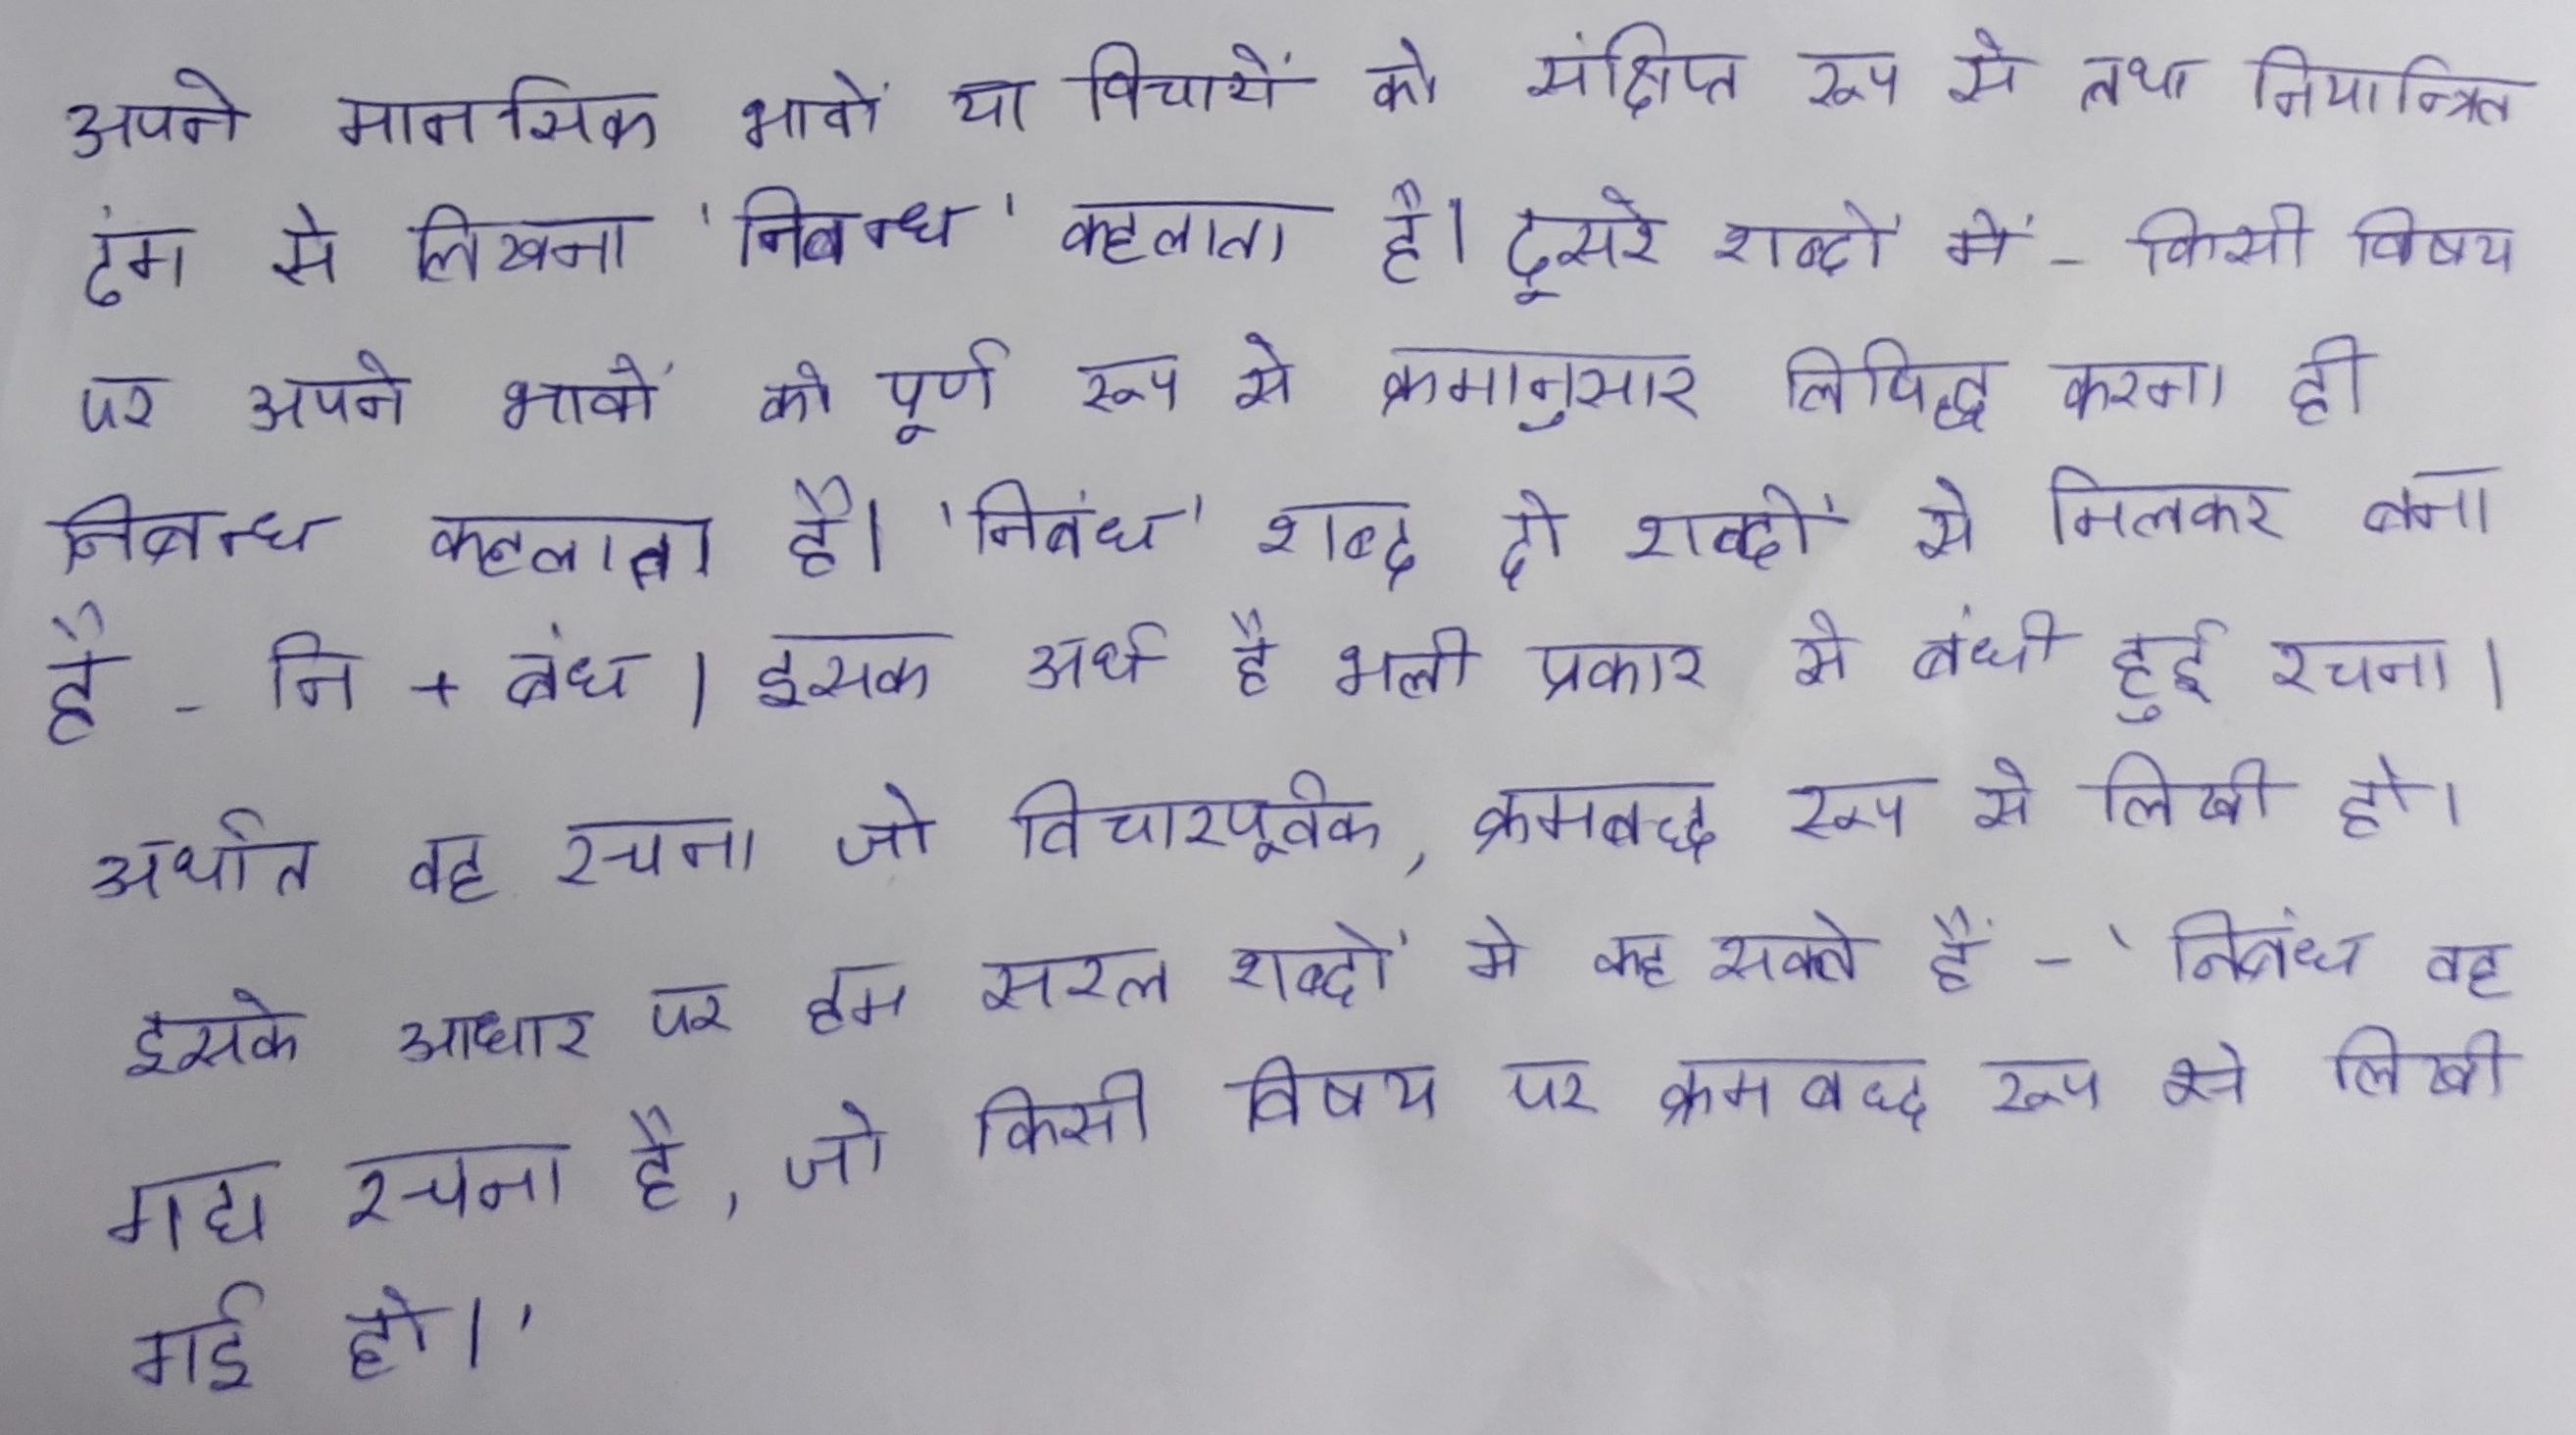 अपने मानसिक भावों या विचारों को संक्षिप्त रूप से तथा नियान्त्रित
ढंग से लिखना 'निबन्ध' कहलाता है। दूसरे शब्दों में - किसी विषय
पर अपने भावों को पूर्ण रूप से क्रमानुसार लिपिद्ध करना ही
निबन्ध कहलाता है। 'निबंध' शब्द दो शब्दों से मिलकर बना
है - नि + बंध । इसक अर्थ है भली प्रकार से बंधी हुई रचना ।
अर्थात वह रचना जो विचारपूर्वक, क्रमबद्ध रूप से लिखी हो।
इसके आधार पर हम सरल शब्दों मे कह सकते हैं - 'निबंध वह
गद्य रचना है, जो किसी विषय पर क्रमबद्ध रूप से लिखी
गई हो।'